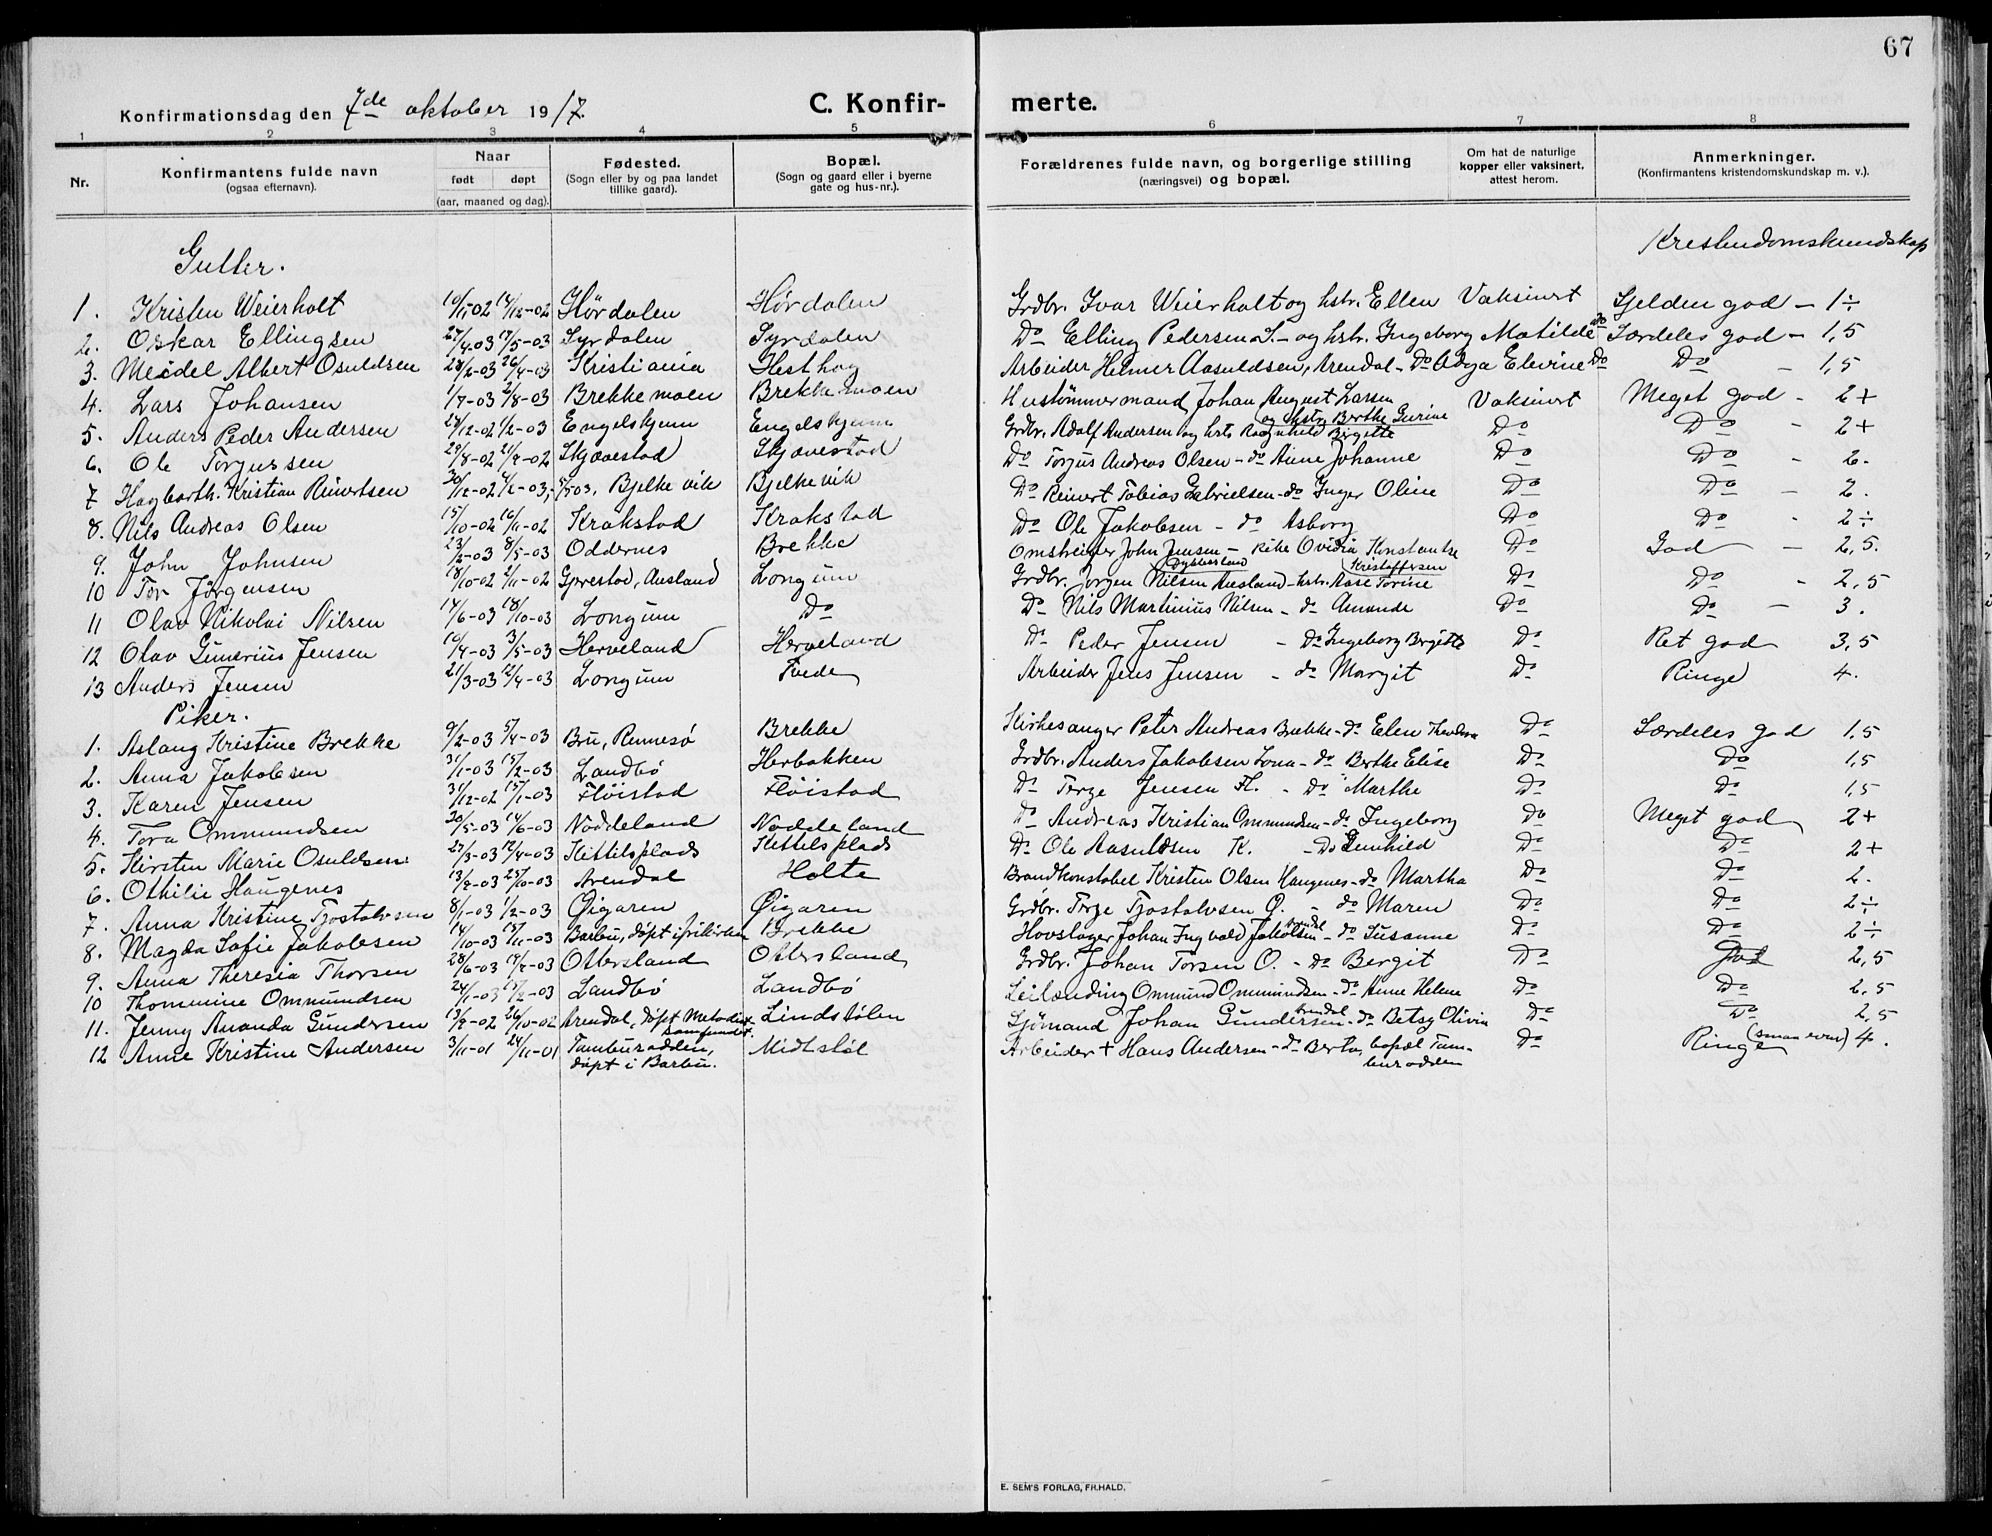 67
Konfirmationsdag den 7de oktober 1917.
C. Konfirmerte.
1 2 3 4 5 6 7 8
Nr. Konfirmantens fulde navn (ogsaa efternavn). Naar født døpt (aar, maaned og dag). Fødested. (Sogn eller by og paa landet tillike gaard). Bopæl. (Sogn og gaard eller i byerne gate og hus-nr.). Forældrenes fulde navn, og borgerlige stilling (næringsvei) og bopæl. Om hat de naturlige kopper eller vaksinert, attest herom. Anmerkninger. (Konfirmantens kristendomskundskap m. v.).
Gutter. Kristendomskundskap
1. Kristen Weierholt Hørdalen Hørdalen Grdbr. Ivar Weierholt og hstr. Ellen Vaksinert Sjelden god - 1÷
2. Oskar Ellingsen 27/4-03 17/5-03 Syrdalen Syrdalen Do Elling Pedersen S. - og hstr. Ingeborg Matilde do Særdeles god - 1,5
3. Meidel Albert Osuldsen 28/2-03 26/4-03 Kristiania Hesthag Arbeider Helmer Aasuldsen, Arendal - Do Elevine Do Do - 1,5
4. Lars Johansen 1/7-03 2/8-03 Brekkemoen Brekkemoen Hustømmermand Johan August Larsen og hstr. Berthe Gurine Vaksinert Meget god - 2+
5. Anders Peder Andersen 24/12-02 1/2-03 Engelskjønn Engelskjønn Grdbr. Adolf Andersen og hstr. Ragnhild Birgitte Do Do - 2+
6. Ole Torjussen 29/8-02 21/9-02 Skjævestad Skjævestad Do Torjus Andreas Olsen - do Anne Johanne Do Do - 2.
7 Hagbarth Kristian Reinertsen 30/12-02 Bjelkevik Bjelkevik Do Reinert Tobias Gabrielsen - do Inger Oline Do Do - 2.
8. Nils Andreas Olsen 15/10-02 16/11-02 Krakstad Krakstad Do Ole Jakobsen - do Asborg Do Do - 2÷
9. John Johnsen 23/2-03 8/5-03 Oddernes Brekke Omstreifer John Jensen - Ovidia Konstantse Kristoffersen Do God - 2,5.
10 Tor Jørgensen 18/10-02 2/11-02 Gjerestad, Ausland Longum Grdbr. Jørgen Nilsen Ausland - hstr. Aase Torine Do Do - 2,5
11 Olav Nikolai Nilsen 14/6-03 18/10-03 Longum Do Do Nils Martinius Nilsen - do Amande Do Do - 3.
12 Olav Gunerius Jensen 10/4-03 3/5-03 Herveland Herveland Do Peder Jensen - Do Ingeborg Bergitte Do Ret god 3,5
13 Anders Jensen 21/3-03 12/4-03 Longum Tvede Arbeider Jens Jensen - do Margit Do Ringe 4.
Piker.
1. Aslaug Kristine Brekke 9/2-03 5/4-03 Bru, Rennesø Brekke Kirkesanger Peter Andreas Brekke - do Elen Theodora Do Særdeles god 1,5
2. Anna Jakobsen 31/1-03 15/2-03 Landbø Herbakken Grdbr. Anders Jakobsen Lona - do Berthe Elise Do Do 1,5
3. Karen Jensen 31/12-02 15/1-03 Fløistad Fløistad Do Terje Jensen Fl. - Do Marthe Do Do 1,5
4. Tora Ommundsen 20/5-03 14/6-03 Noddeland Noddeland Do Andreas Kristian Ommundsen - do Ingeborg Do Meget god 2+
5. Kirsten Marie Osuldsen 23/3-03 12/4-03 Kittilsplads Kittilsplads Do Ole Aasuldsen K. - Do Gunhild Do Do 2+
6. Othilie Haugenes 25/10-03 Arendal Holte Brandkonstabel Kristen Olsen Haugenes - do Martha Do Do 2.
7. Anna Kristine Tjostolvsen 8/1-03 1/2-03 Øigaren Øigaren Grdbr. Terje Tjostolvsen Ø. - do Maren Do Do 2÷
8. Magda Sofie Jakobsen 14/10-03 15/11-03 Barbu, døpt i frikirken Brekke Hovslager Johan Ingvald Jakobsen Arendal - do Susanne Do Do 2÷
9. Anna Theresia Thorsen 28/6-03 Ottersland Ottersland Grdbr. Johan Torsen O. - Do Bergit Do God 2,5
10 Thommine Ommundsen 24/1-03 15/2-03 Landbø Landbø Leilænding Ommund Ommundsen - do Anne Helene Do Do 2,5
11. Jenny Ananda Gundersen 13/9-02 26/10-02 Arendal, døpt Metodistsamfundet. Lindstølen Sjømand Johan Gundersen Arendal - do Betsy Olivia Do Do 2,5
12 Anne Kristine Andersen 3/11-01 24/11-01 Tamburodden, døpt i Barbu. Midtstøl Arbeider + Hans Andersen - do Berta, bopæl Tamburodden Do Ringe (smaa evner) 4.
E. SEM'S FORLAG, FR.HALD.